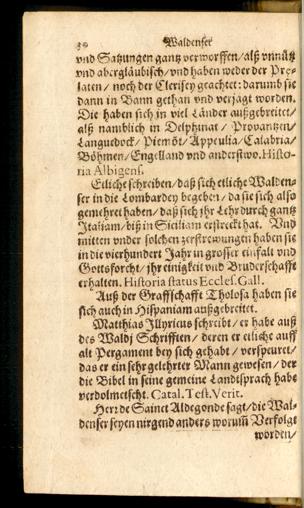 30 Waldenser
vnd Satzungen gantz verworffen/ alß vnnütz
vnd abergläubisch/ vnd haben weder der Pre-
laten/ noch der Clerisey geachtet: darumb sie
dann in Bann gethan vnd verjagt worden.
Die haben sich in viel Länder außgebreitet/
alß namblich in Delphinat/ Provantzen/
Languedock/ Piemót/ Appculia/ Calabria/
Böhmen/ Engelland vnd anderstwo. Histo-
ria Albigens.
Etliche schreiben/ daß sich etliche Walden-
ser in die Lombardey begeben/ da sie sich also
gemehret haben/ daß sich jhr Lehr durch gantz
Italiam/ biß in Siciliam erstreckt hat. Vnd
mitten vnder solchen zerstrewungen haben sie
in die vierhundert Jahr in grosser einfalt vnd
Gottsforcht/ jhr einigkeit vnd Bruderschafft
erhalten. Historia status Eccles. Gall.
Auß der Graffschafft Tholosa haben sie
sich auch in Hispaniam außgebreitet.
Matthias Illyricus schreibt/ er habe auß
des Waldj Schrifften/ deren er etliche auff
alt Pergament bey sich gehabt/ verspeuret/
das er ein sehr gelehrter Mann gewesen/ der
die Bibel in seine gemeine Landtsprach habe
verdolmetscht. Catal. Test. Verit.
Herr de Sainct Aldegonde sagt/ die Wal-
denser seyen nirgend anders worum̃ Verfolgt
worden/